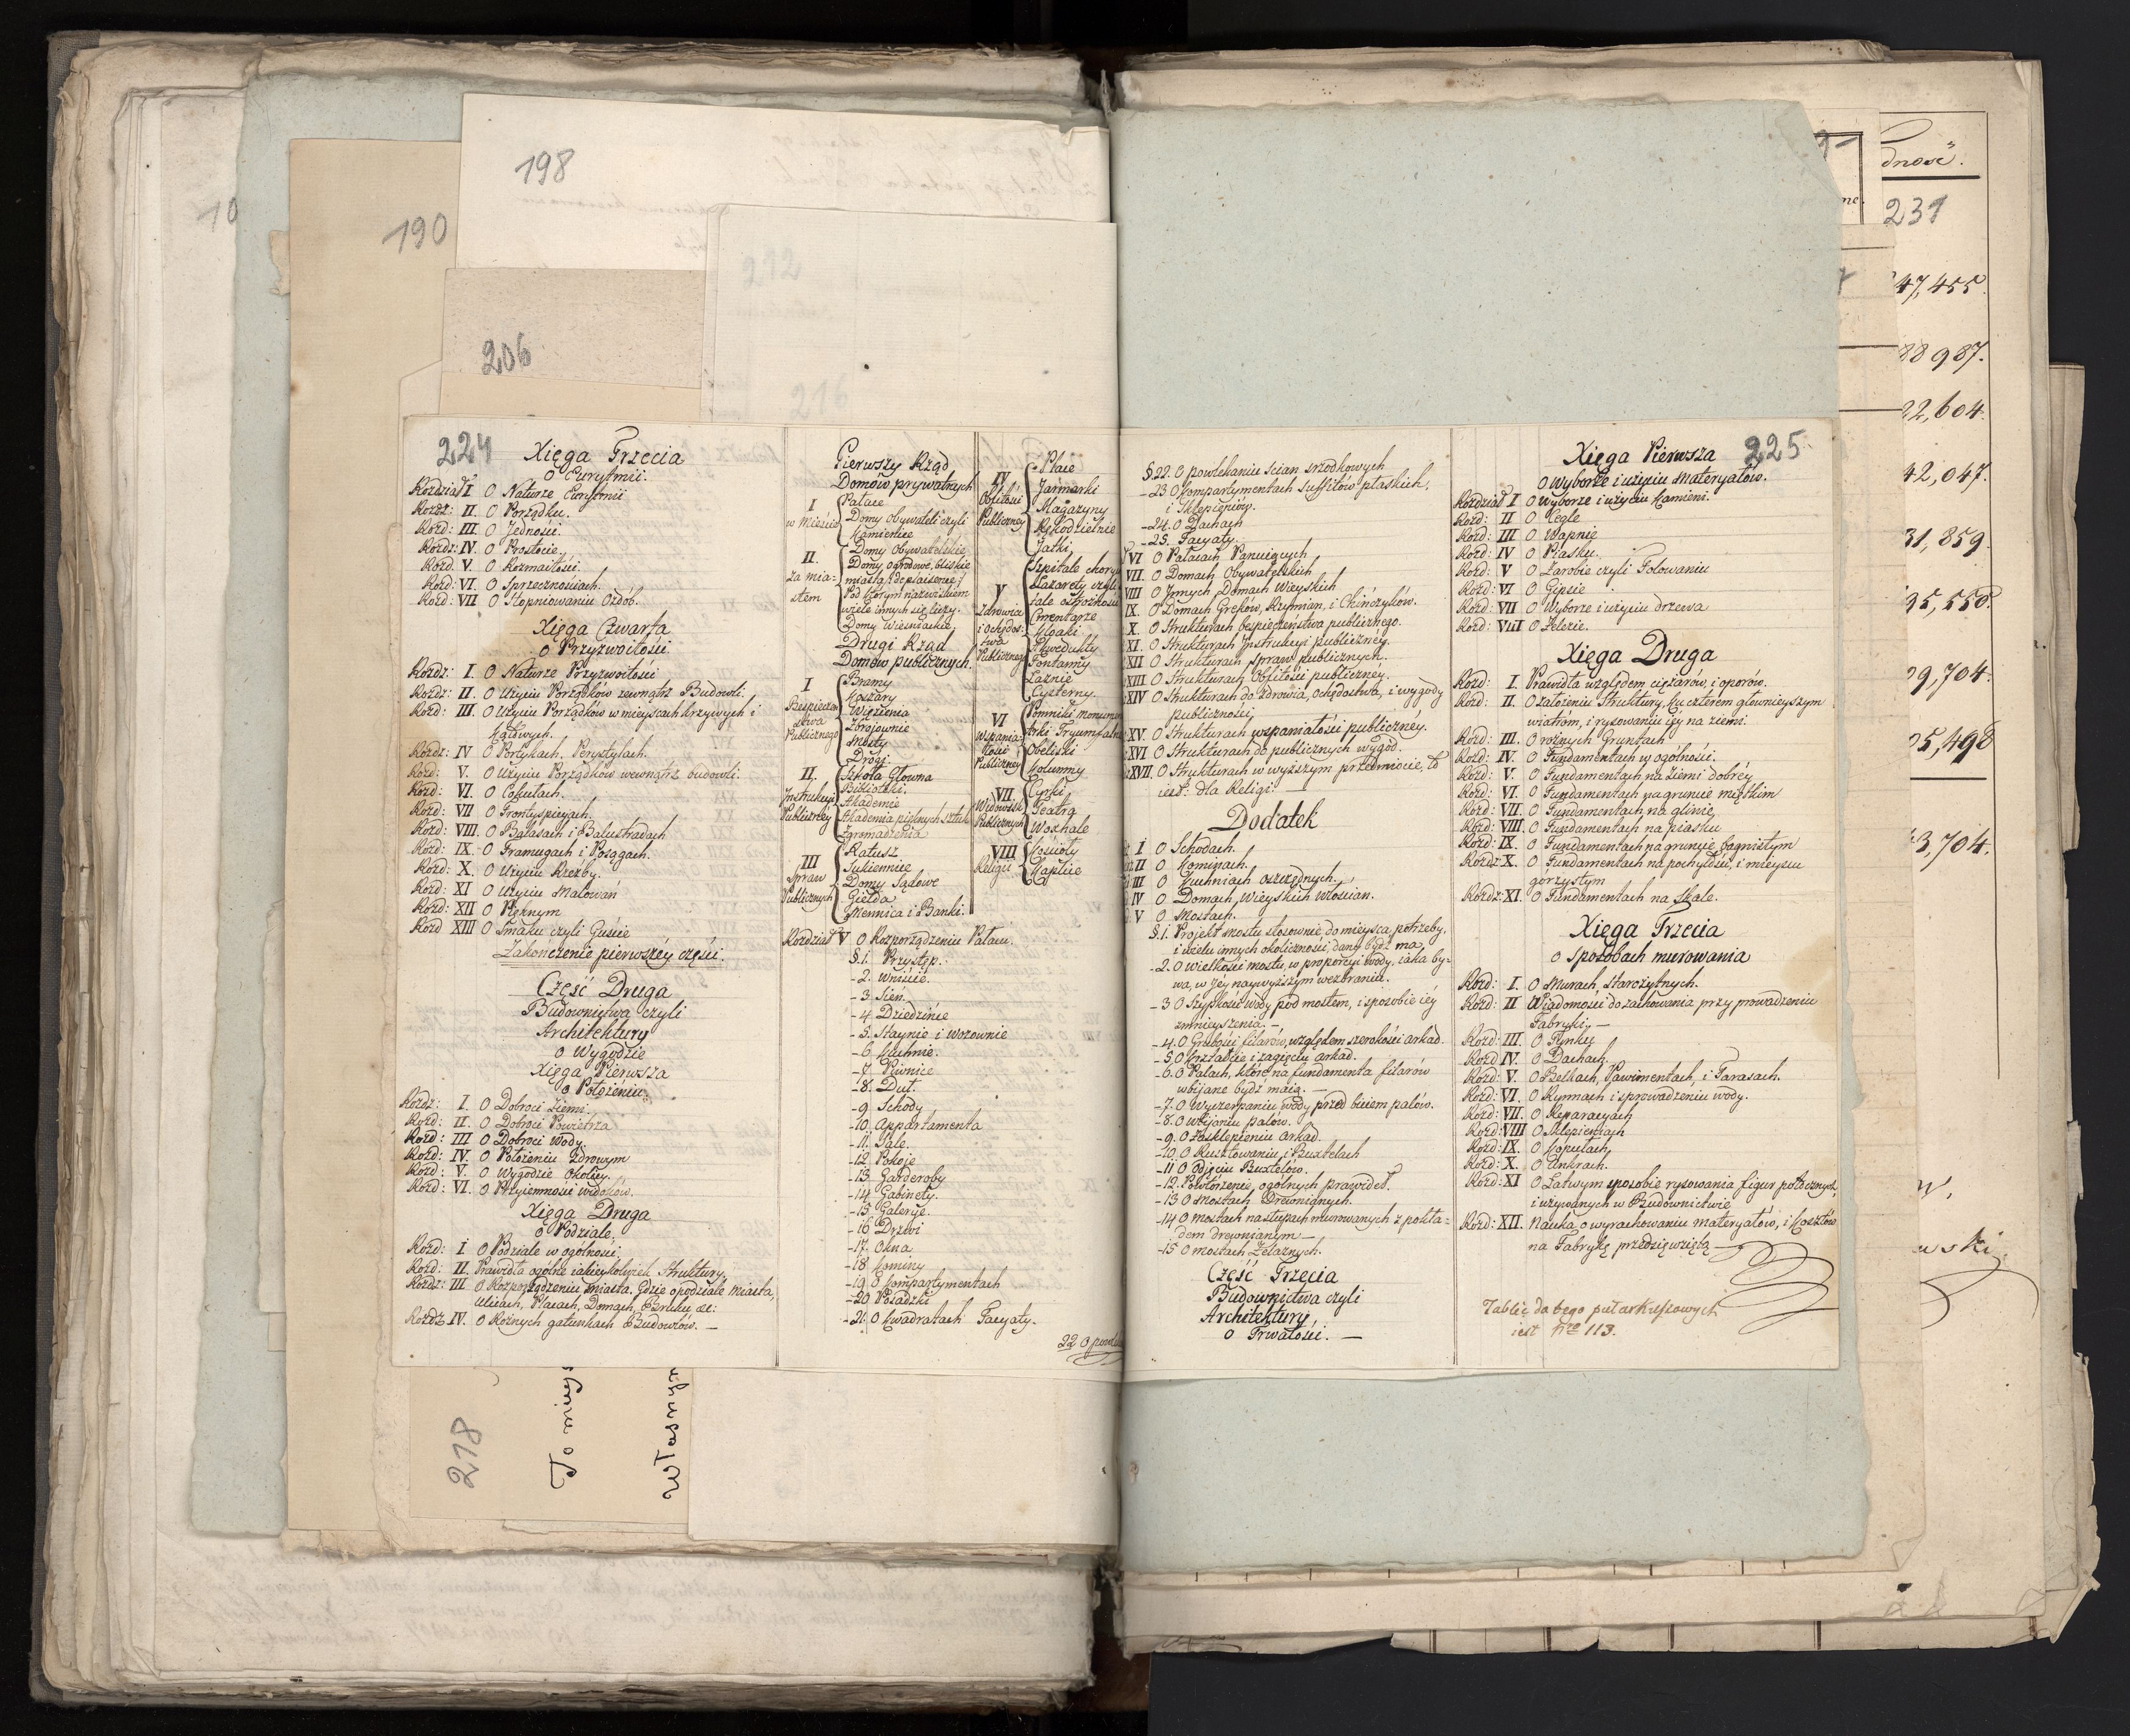 198
190
206
212
216
224
Xięga Trzecia
o Eurytmii.
Rozdział I O Naturze Eurytmii
Rozdz: II. O Porządku.
Rozd: III. O Jedności.
Rozdz: IV. O Prostocie.
Rozd. V. O Rozmaitości.
Rozd: VI. O Sprzecznościach.
Rozd: VII O Stopniowaniu Ozdób.
Xięga Czwarta
o Przyzwoitości
Rozdz: I. O Naturze Przyzwoitości
Rozdz: II. O Użyciu Porządków zewnątrz Budowli.
Rozd: III. O Użyciu Porządków w mieyscach krzywych i
kątowych.
Rozdz: IV O Portykach, Perystylach.
Rozd: V. O Użyciu Porządków wewnątrz budowli.
Rozd: VI. O Cokułach.
Rozd: VII O Frontyspicyach.
Rozd: VIII. O Balasach i Balustradach
Rozd: IX. O Framugach i Posągach.
Rozd: X. O Użyciu Rzeźby.
Rozd: XI O Użyciu Malowań
Rozd: XII O Pięknym
Rozd XIII O Smaku czyli Guście
Zakończenie pierwszéy części.
Część Druga
Budownictwa czyli
Architektury
o Wygodzie
Xięga Pierwsza
o Położeniu.
Rozdz: I. O Dobroci Ziemi.
Rozd: II. O Dobroci Powietrza
Rozd: III O Dobroci Wody.
Rozd: IV. O Położeniu Zdrowym
Rozd: V. O Wygodzie Okolicy.
Rozd: VI. O Przyiemności widoków.
Xięga Druga
o Podziale.
Rozd: I O Podziale w ogólności.
Rozd: II. Prawidła ogólne iakieykolwiek Struktury.
Rozdz: III O Rozporządzeniu Miasta, Gdzie o podziale Miasta,
Ulicach, Placach, Domach, Bruku, &c:
Rozdz. IV. O Różnych gatunkach Budowlów. —
Pierwszy Rząd
Domów prywatnych
I w Mieście
Pałace
Domy Obywateli czyli
Kamienice
II. Za miastem
Domy Obywatelskie
Domy ogrodowe, bliskie
miasta
Pod którym nazwiskiem
wiele innych się liczy.
Domy Wieśniackie.
Drugi Rząd
Domów publicznych.
I Publicznego
Bramy
Koszary
Więzienia
Zbroiownie
Mosty
Drogi
II. Instrukcyi Publiczney
Szkoła Główna
Biblioteki.
Akademie
Akademia pięknych sztuk
Zgromadzenia
III Spraw Publicznych
Ratusz
Sukiennice
Domy Sądowe
Giełda
Mennica i Banki.
IV Obfitości Publiczney
Place
Jarmarki
Magazyny
Rękodzielnie
Jatki
V Zdrowia i Ochędostwa Publicznego
Szpitale
Lazarety czyli
Cmentarze
Kloaki
Akwedukty
Fontanny
Łaznie
Cysterny.
VI Wspaniałości Publiczney
Pomniki
Arki Tryumfalne
Obeliski
Kolumny
VII. Widowisk Publicznych
Cyrki
Teatra
Woxhale
VIII Religii
Kościoły
Kaplice
Rozdział V O Rozporządzeniu Pałacu.
§.1. Przystęp.
-2. Wniście.
-3. Sień.
-4. Dziedzińce
-5. Staynie i wozownie
-6. Kuchnie.
-7. Piwnice
-8. Dut
-9. Schody
-10. Appartamenta
-11. Sale.
-12. Pokoie
-13. Garderoby
-14 Gabinety.
-15 Galerye.
-16 Drzwi
-17. Okna
-18 Kominy
-19 O Kompartymentach
-20 Posadzki
-21. O Kwadratach Facyaty.
22 O
§.22. O powlekaniu ścian srzodkowych
-23 O Kompartymentach Suffitów płaskich,
i Sklepieniów.
-24. O Dachach
-25. Facyaty.
VI O Pałacach Panuiących
VII. O Domach Obywatelskich
VIII O Innych Domach Wieyskich
IX. O Domach Greków, Rzymian, i Chińczyków.
X. O Strukturach bespieczeństwa publicznego.
XI. O Strukturach Instrukcyi publiczney.
XII O Strukturach Spraw publicznych.
XIII O Strukturach Obfitości publicznéy.
XIV O Strukturach do Zdrowia, ochędostwa, i wygody
publiczności
XV. O Strukturach wspaniałości publicznéy.
XVI O Strukturach do publicznych wygód.
XVII. O Strukturach w wyższym przedmiocie, to
iest: dla Religii —
Dodatek
I O Schodach.
II O Kominach.
III O Kuchniach oszczędnych.
IV O Domach Wieyskich Włościan.
V O Mostach.
§.1 Projekt Mostu stosownie do mieysca, potrzeby,
i wielu innych okoliczności, dany bydź ma,
-2. O wielkości mostu, w proporcyi wody, iaka by=
wa, w Jéy naywyższym wezbraniu.
-3 O Szypkości wody pod mostem, i sposobie iéy
zmnieyszenia. —
-4. O Grubości filarów, względem szerokości arkad.
-5. O Kształcie i zagięciu arkad.
-6. O Palach, które na fundamenta filarów
wbijane bydź maią. —
-7. O Wyczerpaniu wody przed biciem palów.
-8. O wbijaniu palów.
-9. O Zasklepieniu Arkad.
-10. O Rusztowaniu, i Buxtelach
-11 O zdjęciu Buxtelów.
-12. Powtórzenie ogólnych prawideł.
-13 O Mostach Drewnianych.
-14 O mostach na słupach murowanych z pokła=
dem drewnianym —
-15 O mostach Żelaznych.
Część Trzecia
Budownictwa czyli
Architektury
o Trwałości. —
Xięga Pierwsza 225
o Wyborze i użyciu Materyałów.
Rozdział I O Wyborze i użyciu Kamieni.
Rozd: II O Cegle
Rozd: III O Wapnie
Rozd: IV O Piasku.
Rozd: V O Zarobie czyli Folowaniu
Rozd: VI O Gipsie
Rozd: VII O Wyborze i użyciu drzewa
Rozd: VIII O Żelezie.
Xięga Druga
Rozd: I. Prawidła względem ciężarów, i oporów.
Rozd: II. O założeniu Struktury, ku czterem główneyszym
wiatrom, i rysowaniu iéy na ziemi.
Rozd: III. O różnych Gruntach
Rozd: IV. O Fundamentach w ogólności.
Rozd: V. O Fundamentach na Ziemi dobréy
Rozd: VI. O Fundamentach na gruncie miętkim
Rozd: VII. O Fundamentach, na glinie
Rozd: VIII. O Fundamentach na piasku
Rozd: IX. O Fundamentach na gruncie bagnistym
Rozdz: X. O Fundamentach na pochyłości, i mieyscu
górzystym
Rozdz: XI. O Fundamentach na Skale.
Xięga Trzecia
o Sposobach murowania
Rozd: I. O Murach Starożytnych.
Rozd: II Wiadomości do zachowania przy prowadzeniu
Fabryki. —
Rozd: III. O Tynku
Rozd: IV. O Dachach.
Rozd: V. O Belkach, Pawimentach, i Tarasach.
Rozd: VI. O Rynnach i sprowadzeniu wody.
Rozd: VII. O Reparacyach
Rozd: VIII O Sklepieniach
Rozd: IX. O Kopułach
Rozd: X. O Ankrach.
Rozd: XI O Łatwym sposobie rysowania figur potrzebnych,
i używanych w Budownictwie
Rozd: XII. Nauka, o wyrachowaniu Materyałów, i Kosztów
na Fabrykę przedsięwziętą —
Tablic do tego pułarkuszowych
iest Nro 113.
218
To
Własny
dność.
231
47,455.
88 987.
22,604.
42,047.
31,859.
95,558.
09,704.
05,498
3,704.
wski